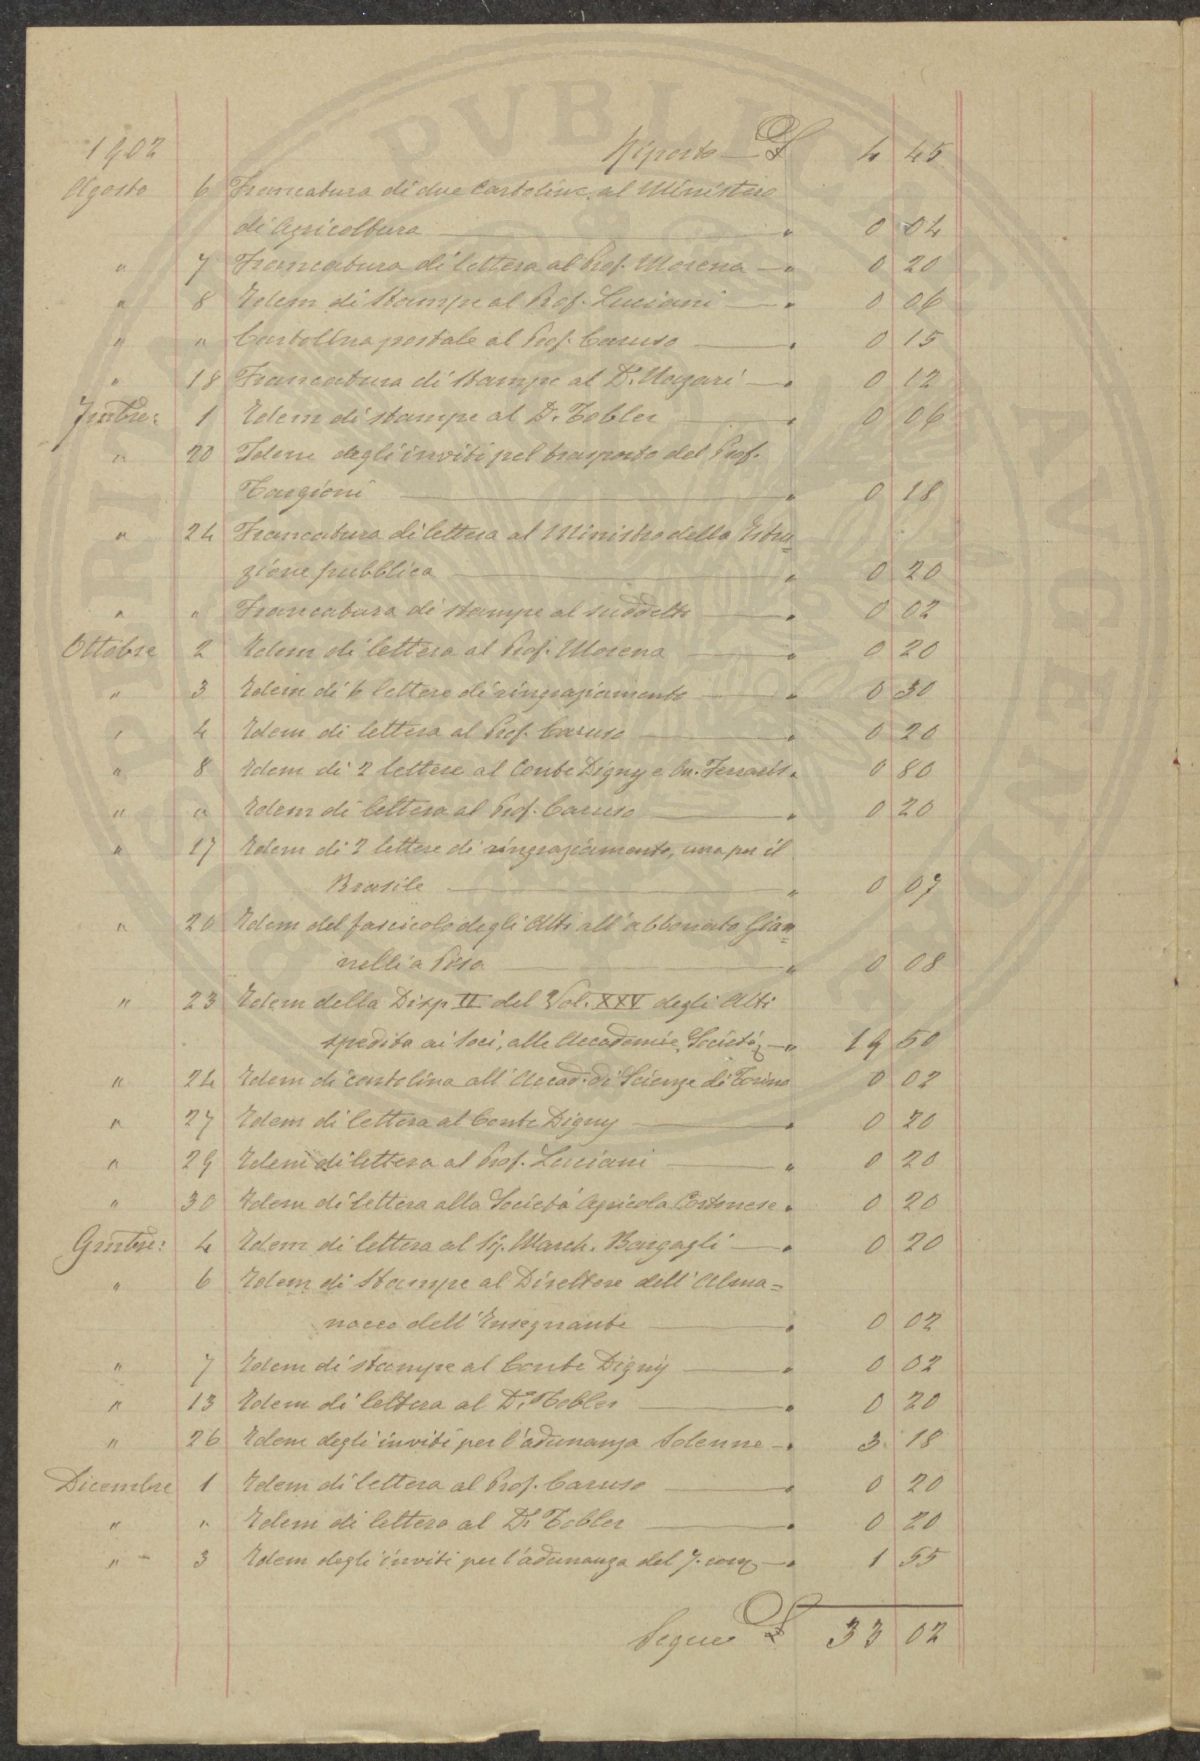 1902 Riporto — £ 4 45
Agosto 6 Francatura di due Cartoline al Ministero
di Agricoltura — " 0 04
" 7 Francatura di lettera al Prof. Morena — " 0 20
" 8 Idem di Stampe al Prof. Luciani — " 0 06
" " Cartolina postale al Prof. Caruso — " 0 15
" 18 Francatura di stampe al D. — " 0 12
7mbre: 1 Idem di stampe al D. Tobler — " 0 06
" 20 Idem degli inviti pel trasporto del Prof.
Targioni — " 0 18
" 24 Francatura di lettera al Ministro della Istru=
zione pubblica — " 0 20
" " Francatura di stampe al suddetto — " 0 02
Ottobre 2 Idem di lettera al Prof. Morena — " 0 20
" 3 Idem di 6 lettere di ringraziamento — " 0 30
" 4 Idem di lettera al Prof. Caruso — " 0 20
" 8 Idem di 2 lettere al Conte Digny e On. Ferraris " 0 80
" " Idem di lettera al Prof. Caruso — " 0 20
" 17 Idem di 2 lettere di ringraziamento, una per il
Brasile — " 0 07
" 20 Idem del fascicolo degli Atti all'abbonato Gian=
nelli a Pisa — " 0 08
" 23 Idem della Disp II del Vol. XXV degli Atti
spedita ai Soci, alle Accademie, Società — " 19 50
" 24 Idem di cartolina all'Accad. di Scienze di Torino 0 02
" 27 Idem di lettera al Conte Digny — " 0 20
" 29 Idem di lettera al Prof. Luciani — " 0 20
" 30 Idem di lettera alla Società Agricola Cortonese " 0 20
9mbre: 4 Idem di lettera al Sig. March. Bargagli — " 0 20
" 6 Idem di Stampe al Direttore dell'Alma=
nacco dell'Insegnante — " 0 02
" 7 Idem di stampe al Conte Digny — " 0 02
" 13 Idem di lettera al D. Tobler — " 0 20
" 26 Idem degli inviti per l'adunanza Solenne — " 3 18
Dicembre 1 Idem di lettera al Prof. Caruso — " 0 20
" " Idem di lettera al D. Tobler — " 0 20
" 3 Idem degli inviti per l'adunanza del 7. corr. — " 1 55
Segue £ 33 02